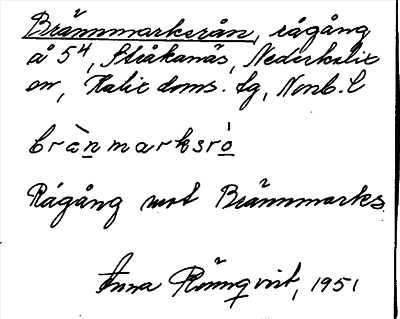 Brännmarksrån, rågång
å 5⁴, Stråkanäs, Nederkalix
sn, Kalix doms. tg, Nonb. l
brànmarksró
Rågång mot Brännmarks
Anna Rönnqvist, 1951